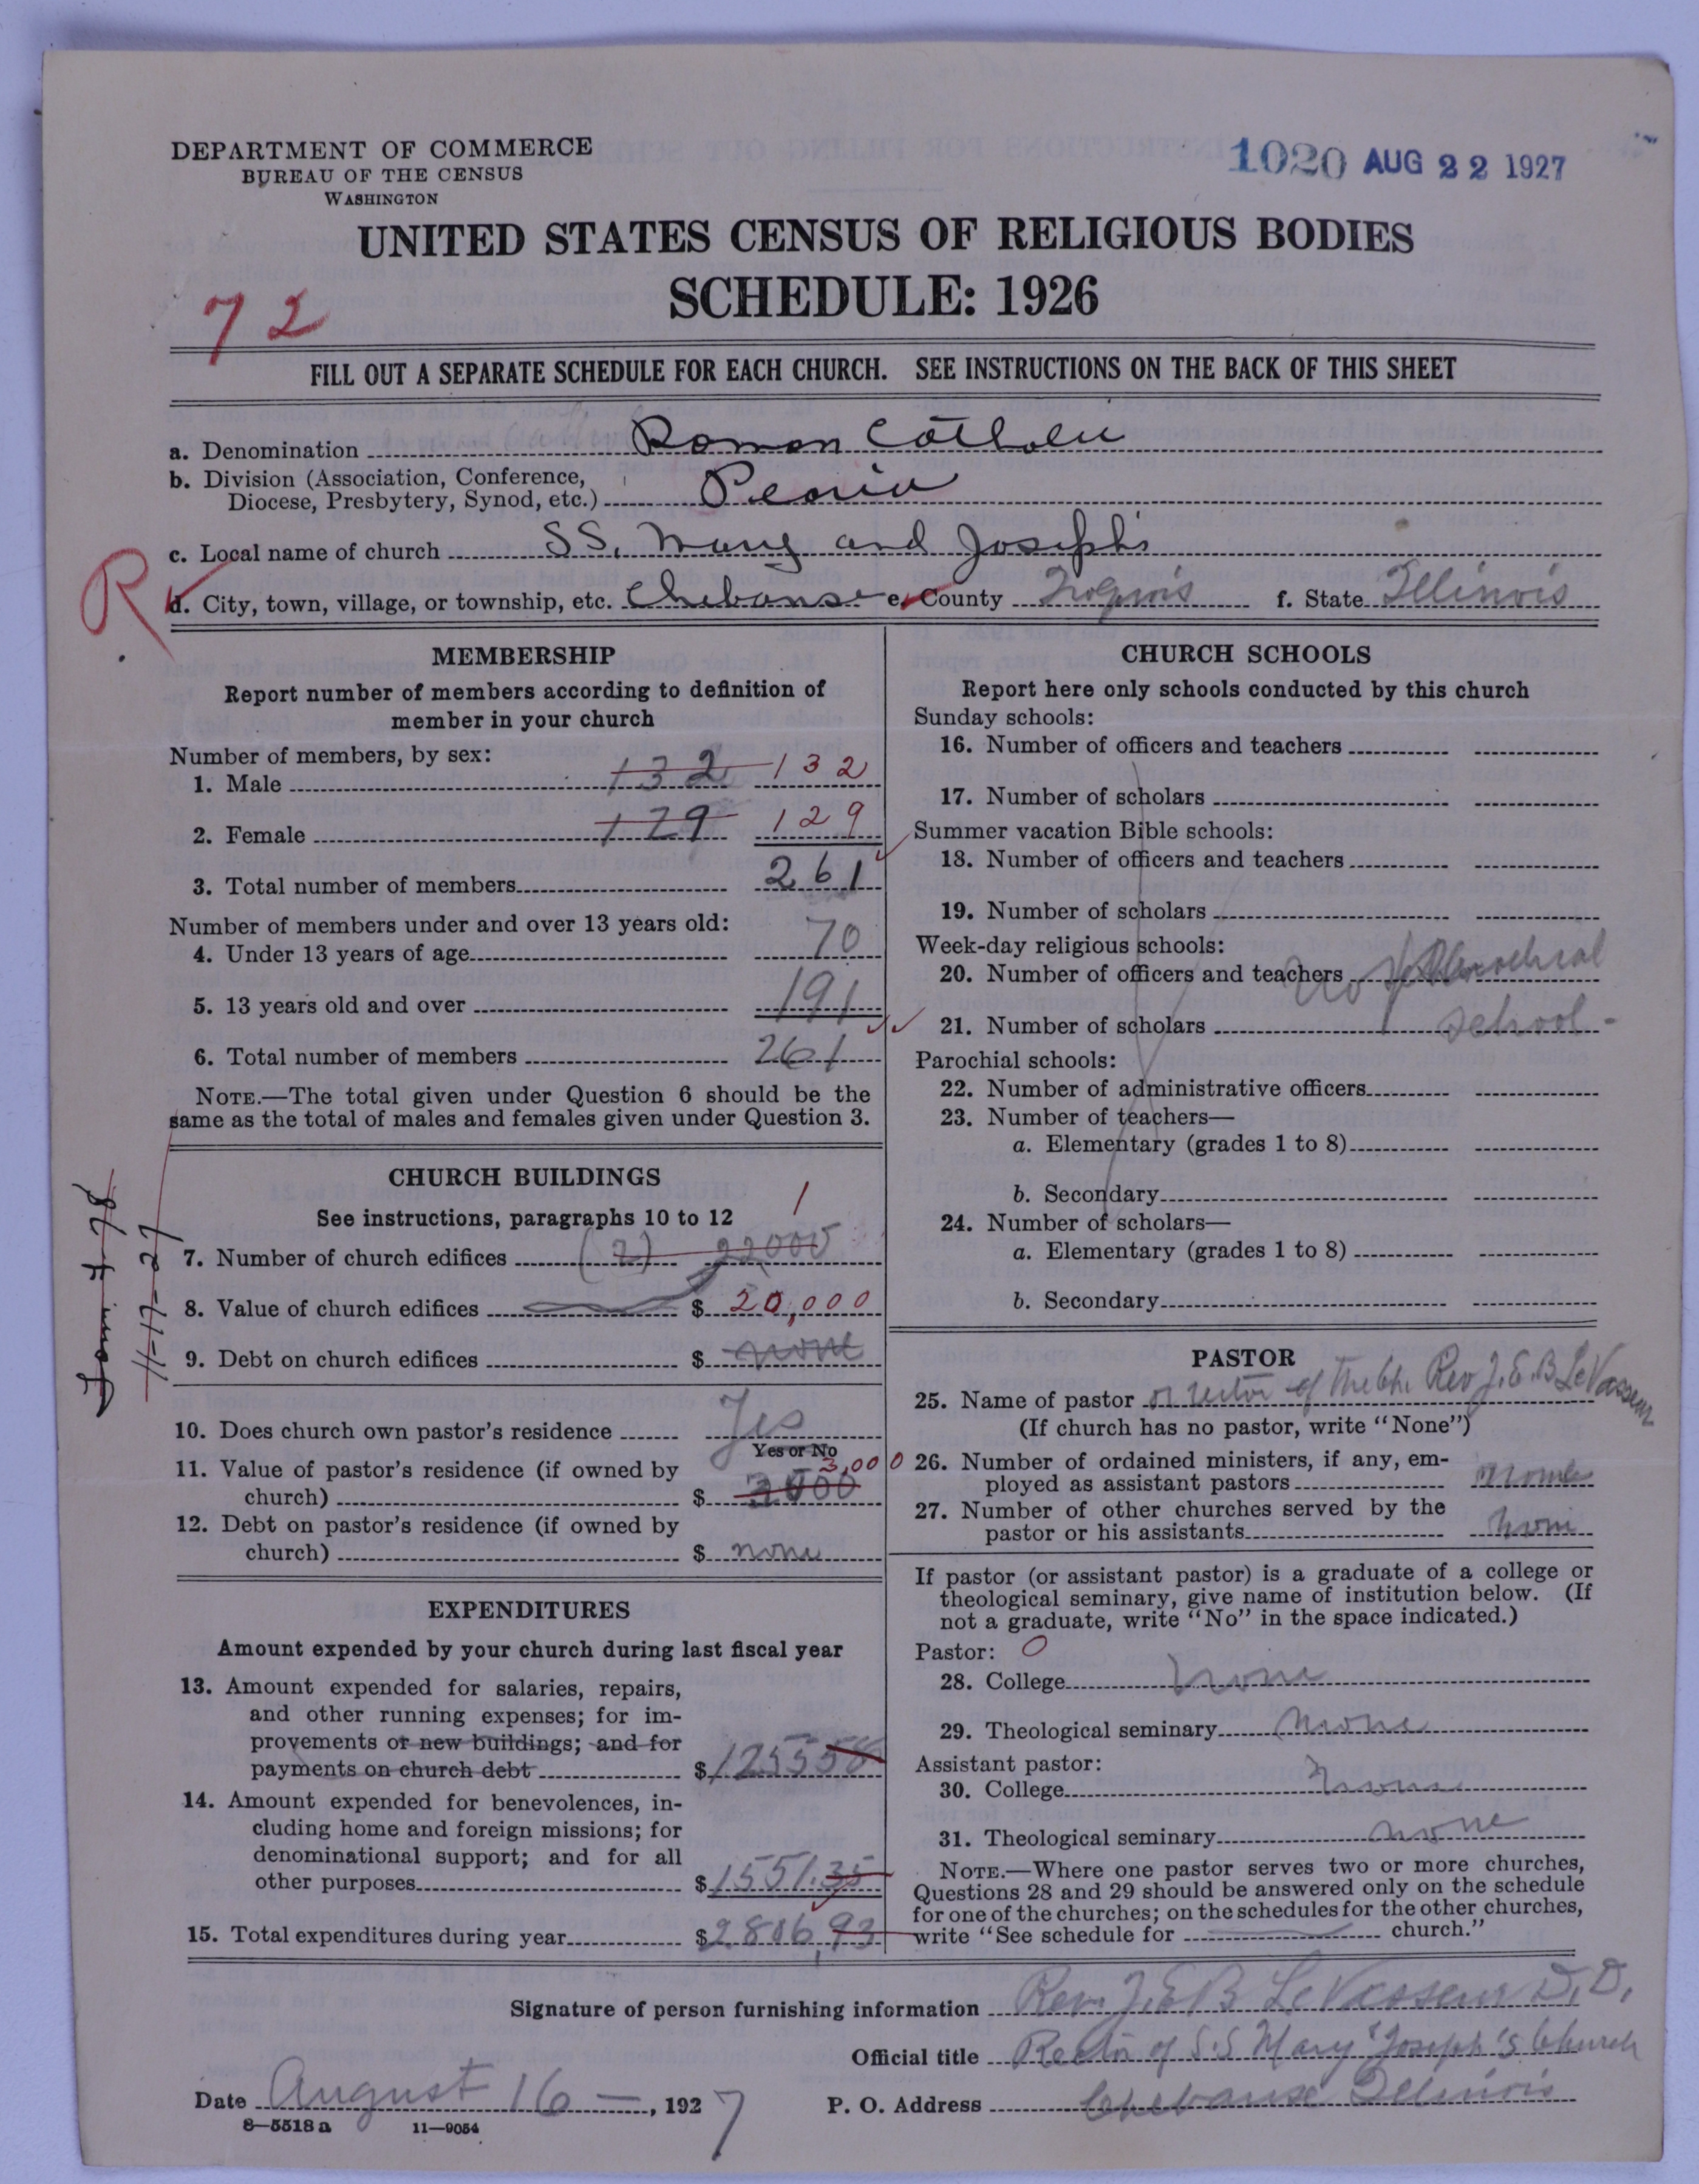 DEPARTMENT OF COMMERCE
BUREAU OF THE CENSUS
WASHINGTON
1020 AUG 22 1927
UNITED STATES CENSUS OF RELIGIOUS BODIES
SCHEDULE: 1926
72
FILL OUT A SEPARATE SCHEDULE FOR EACH CHURCH. SEE INSTRUCTIONS ON THE BACK OF THIS SHEET
a. Denomination Roman Catholic
b. Division (Association, Conference,
Diocese, Presbytery, Synod, etc.) Peoria
c. Local name of church SS. Mary and Joseph's
R
d. City, town, village, or township, etc. Chebanse e. County f. State Illinois
MEMBERSHIP
Report number of members according to definition of
member in your church
Number of members, by sex:
1. Male 132 132
2. Female 129 129
3. Total number of members 261
Number of members under and over 13 years old:
4. Under 13 years of age 70
5. 13 years old and over 191
6. Total number of members 261
NOTE.—The total given under Question 6 should be the
same as the total of males and females given under Question 3.
CHURCH BUILDINGS
See instructions, paragraphs 10 to 12
1
7. Number of church edifices (2) 22000
8. Value of church edifices $ 20,000
9. Debt on church edifices $ none
10. Does church own pastor's residence Yes
Yes or No
11. Value of pastor's residence (if owned by 3,000
church) $ 3000
12. Debt on pastor's residence (if owned by
church) $ none
11-17-27
EXPENDITURES
Amount expended by your church during last fiscal year
13. Amount expended for salaries, repairs,
and other running expenses; for im-
provements or new buildings; and for
payments on church debt $ 1255 58
14. Amount expended for benevolences, in-
cluding home and foreign missions; for
denominational support; and for all
other purposes $ 1551.35
15. Total expenditures during year $ 2806,93
CHURCH SCHOOLS
Report here only schools conducted by this church
Sunday schools:
16. Number of officers and teachers
17. Number of scholars
Summer vacation Bible schools:
18. Number of officers and teachers
19. Number of scholars
Week-day religious schools:
20. Number of officers and teachers no Parochial
21. Number of scholars school -
Parochial schools:
22. Number of administrative officers
23. Number of teachers—
a. Elementary (grades 1 to 8)
b. Secondary
24. Number of scholars—
a. Elementary (grades 1 to 8)
b. Secondary
PASTOR
25. Name of pastor or rector of the Ch. Rev J.E.B LeVasseur
(If church has no pastor, write "None")
26. Number of ordained ministers, if any, em-
ployed as assistant pastors none
27. Number of other churches served by the
pastor or his assistants none
If pastor (or assistant pastor) is a graduate of a college or
theological seminary, give name of institution below. (If
not a graduate, write "No" in the space indicated.)
Pastor: 0
28. College none
29. Theological seminary none
Assistant pastor:
30. College none
31. Theological seminary none
NOTE.—Where one pastor serves two or more churches,
Questions 28 and 29 should be answered only on the schedule
for one of the churches; on the schedules for the other churches,
write "See schedule for church."
Signature of person furnishing information Rev. J.E B LeVasseur D.D.
Official title Rector of S.S Mary & Joseph's Church
Date August 16 —, 1927 P. O. Address Chebanse Illinois
8—5518 a 11—9054